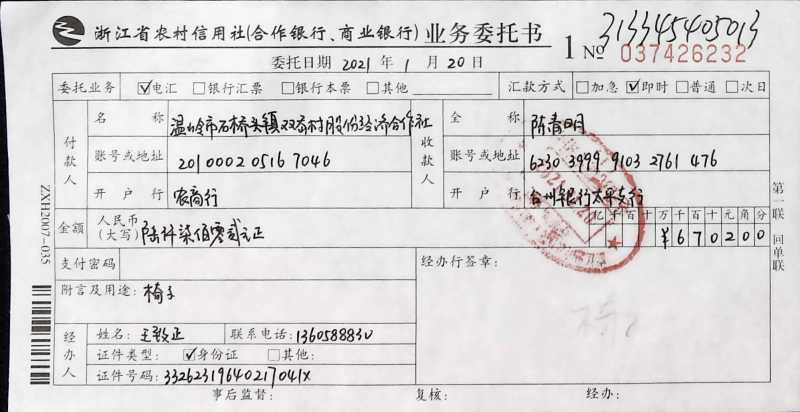 浙江省农村信用社(合作银行、商业银行) 业务委托书
313345405013
1 № 037426232
委托日期 2021 年 1 月 20 日
委托业务 ☑电汇 □银行汇票 □银行本票 □其他 汇款方式 □加急 ☑即时 □普通 □次日
付款人 名称 温岭市石桥头镇双峦村股份经济合作社
收款人 全称 陈青明
账号或地址 201000205167046
账号或地址 6230 3999 9103 2761 476
开户行 农商行
开户行 台州银行太平支行
金额 人民币(大写) 陆仟柒佰零贰元正
亿千百十万千百十元角分
¥670200
支付密码
经办行签章:
附言及用途: 椅子
经办人 姓名: 王敬正 联系电话: 1360588830
证件类型: ☑身份证 □其他:
证件号码: 33262319640217041X
事后监督: 复核: 经办:
第一联 回单联
ZXH2007-035